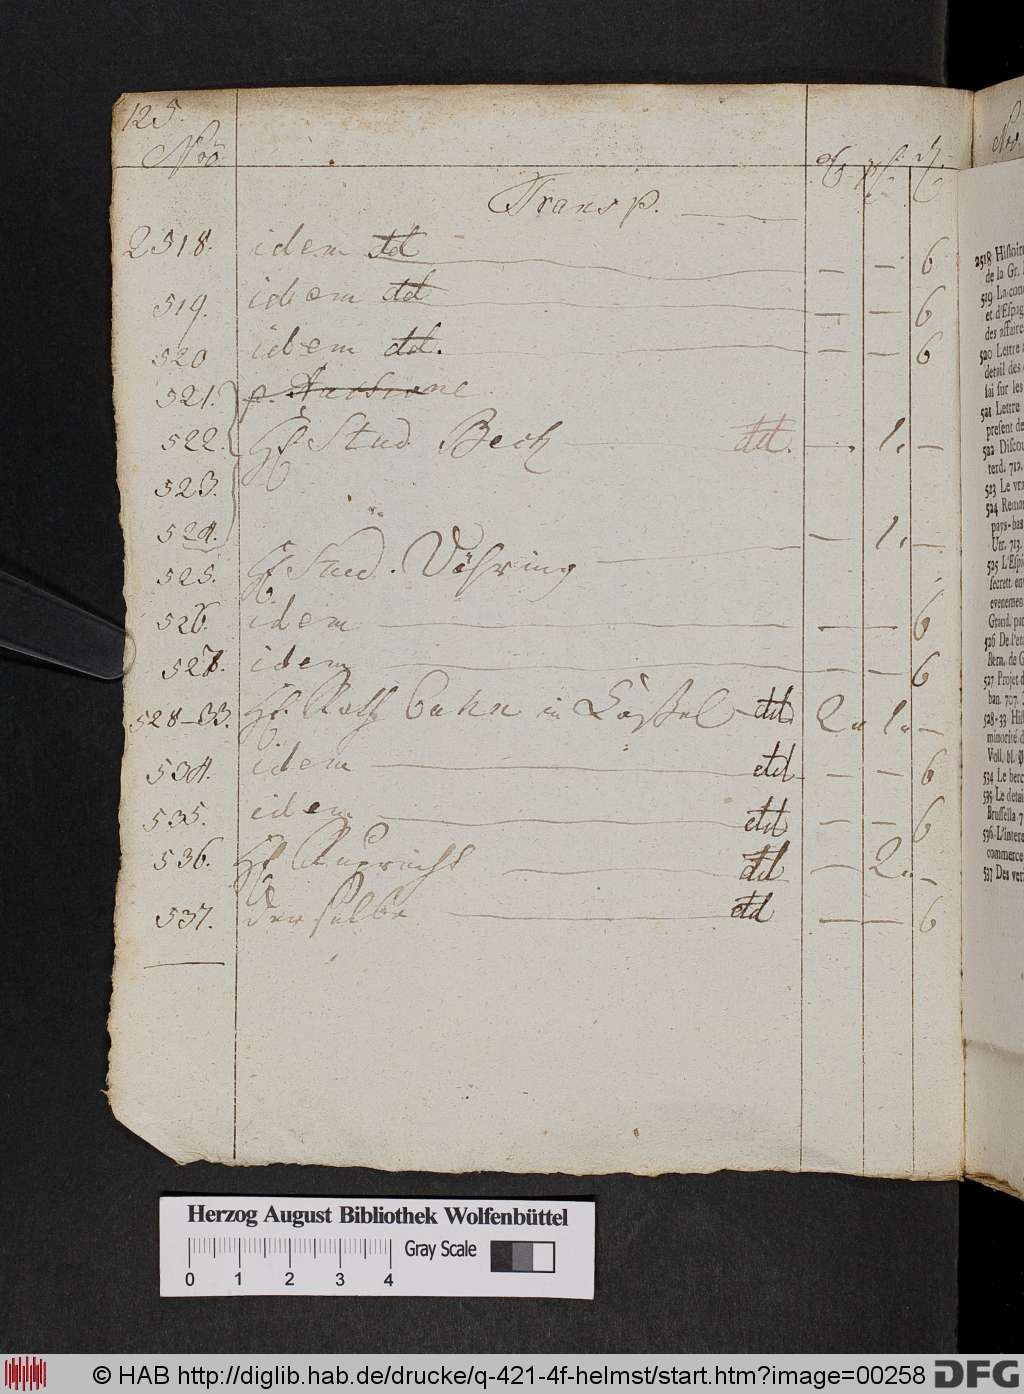 125.
Nro
Transp.
2518. idem dd — — 6
519. idem dd — — 6
520 idem dd. — — 6
521. p. Auctione
522. H. Stud Beck dd. — 1. —
523.
524.
525. H. Stud. Döhring — 1. —
526. idem — — 6
527. idem — — 6
528-33. H. Rath Cuhn in Caßel dd. 2. 1. —
534. idem dd — — 6
535. idem dd — — 6
536. H. Ruprecht dd — 2. —
537. Derselbe dd — — 6
Nro.
2518 Histoire
de la Gr.
519 La con
et d'Espag
des affaire
520 Lettre
detail des
sai sur les
521 Lettre
present de
522 Discou
terd. 712.
523 Le vra
524 Remar
pays-bas
Utr. 713.
525 L'Espi
secrett. en
evenemen
Grand. par
526 De l'et
Bern. de G
527 Projet d
ban. 707.
528-33 Hist
minorité d
Voll. bl.
534 Le berc
535 Le detai
Brussella 7
536 L'intere
commerce
537 Des veri
Herzog August Bibliothek Wolfenbüttel
0 1 2 3 4 Gray Scale
© HAB http://diglib.hab.de/drucke/q-421-4f-helmst/start.htm?image=00258 DFG